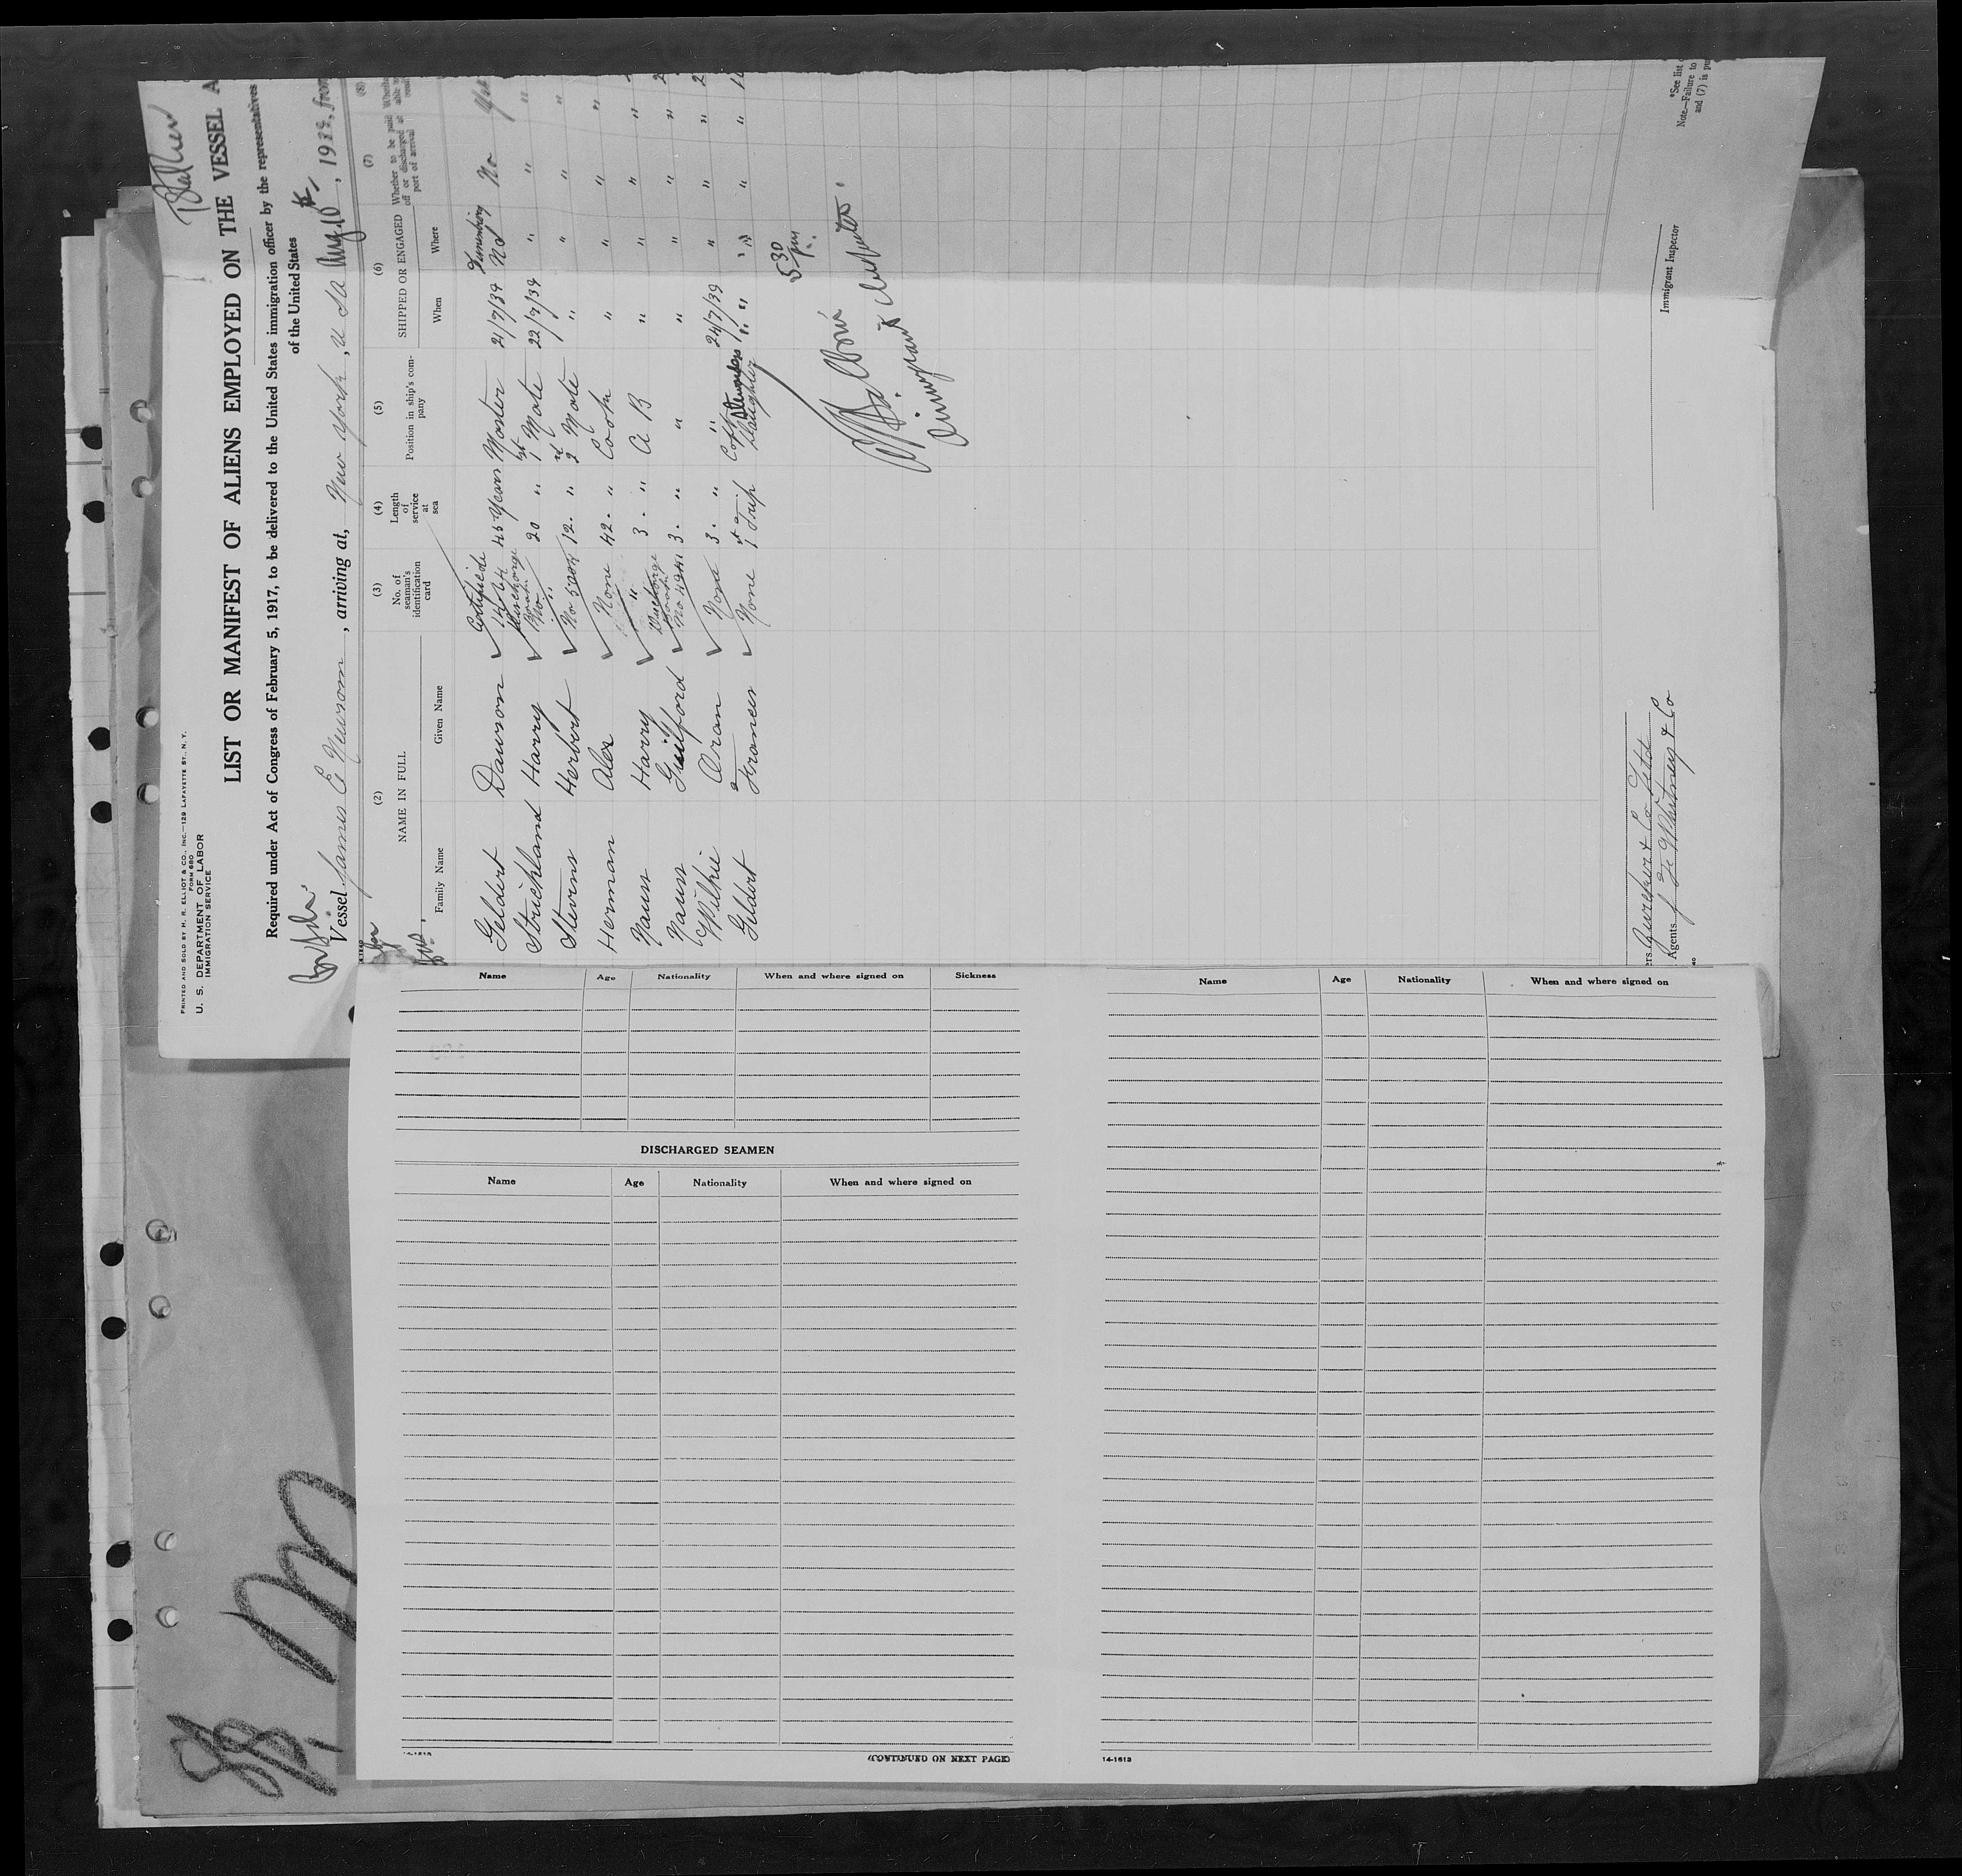 PRINTED AND SOLD BY H. R. ELLIOT & CO., INC.—129 LAFAYETTE ST., N. Y.
FORM 680
U. S. DEPARTMENT OF LABOR
IMMIGRATION SERVICE
LIST OR MANIFEST OF ALIENS EMPLOYED ON THE VESSEL A
Required under Act of Congress of February 5, 1917, to be delivered to the United States immigration officer by the representatives
of the United States
Vessel James E Newsom, arriving at, New York, U SA Aug 10th, 1939, from
(2) (3) (4) (5) (6) (7) (8)
NAME IN FULL No. of seaman's identification card Length of service at sea Position in ship's company SHIPPED OR ENGAGED Whether to be paid off or discharged at port of arrival
Family Name Given Name When Where
Geldert Dawson Certificate 45 Years Master 21/7/39 Lunenburg NS No Yes
Strickland Harry Discharge Book No 20 " 1st Mate 22/7/39 " " "
Stevens Herbert No 12 " 2nd Mate " " " "
Herman Alex None 42 " Cook " " " "
Nauss Harry " 3 " A B " " " "
Nauss Guilford Discharge Book No 3 " " " " " "
Wilkie Aran None 3 " " 24/7/39 " " "
Geldert Frances None 1st Trip Capt Daughter " " " "
5 30 pm
Immigrant Inspector
*See list
Note.—Failure to
and (7) is
Zwicker & Co Ltd
Agents J F Whitney & Co
Name Age Nationality When and where signed on Sickness
DISCHARGED SEAMEN
Name Age Nationality When and where signed on
(CONTINUED ON NEXT PAGE)
Name Age Nationality When and where signed on
14-1613